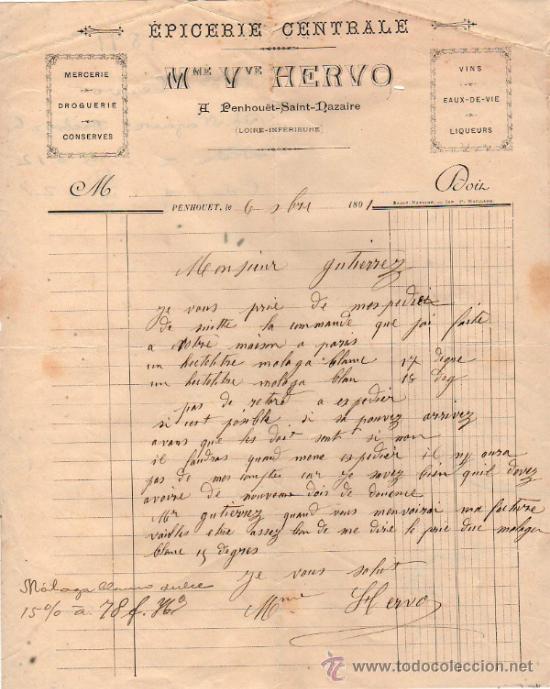 ÉPICERIE CENTRALE
MERCERIE
DROGUERIE
CONSERVES
Mme Vve HERVO
A Penhouët-Saint-Nazaire
(LOIRE-INFÉRIEURE)
VINS
EAUX-DE-VIE
LIQUEURS
M
Doit
PENHOUET, le 6 1891
Monsieur gutierrez
je vous prie de mespedier
de suitte la commande que jai faite
a votre maison a paris
un hectelitre malaga blanc 17 degre
un hectelitre malaga blan 15 deg
pas de retard a espedier
si cest posible si sa pouvez arrivez
avans que les doit sont si non
il faudras quand meme espedier il ny aura
pas de mes comptes car je savez bien quil devez
avoire de nouveau dois de douence
Mr gutierrez quand vous menvoirai ma facture
vailles etre assez bon de me dire le prix due malaga
blanc 15 degres
je vous salut
Mme Hervo
Málaga blanco dulce
15% à 78 f. Ho
www.todocoleccion.net